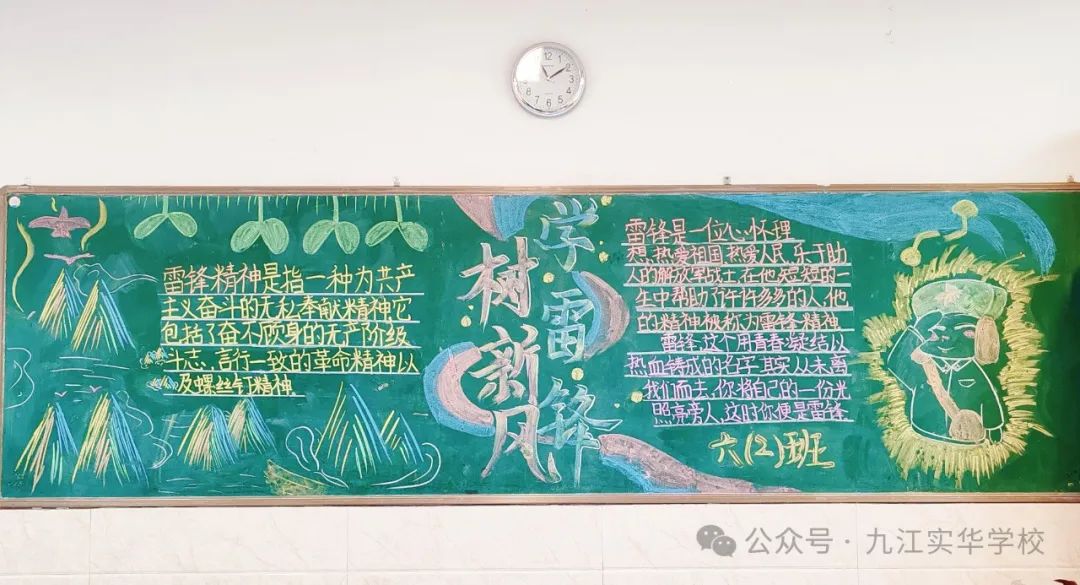 雷锋精神是指一种为共产
主义奋斗的无私奉献精神它
包括了奋不顾身的无产阶级
斗志、言行一致的革命精神以
及螺丝钉精神
学雷锋
树新风
雷锋是一位心怀理
想、热爱祖国、热爱人民、乐于助
人的解放军战士在他短短的一
生中帮助了许许多多的人,他
的精神被称为雷锋精神
雷锋,这个用青春凝结以
热血铸成的名字,其实从未离
我们而去,你将自己的一份光
照亮旁人,这时你便是雷锋
六(2)班
12
1
2
3
4
5
6
7
8
公众号·九江实华学校